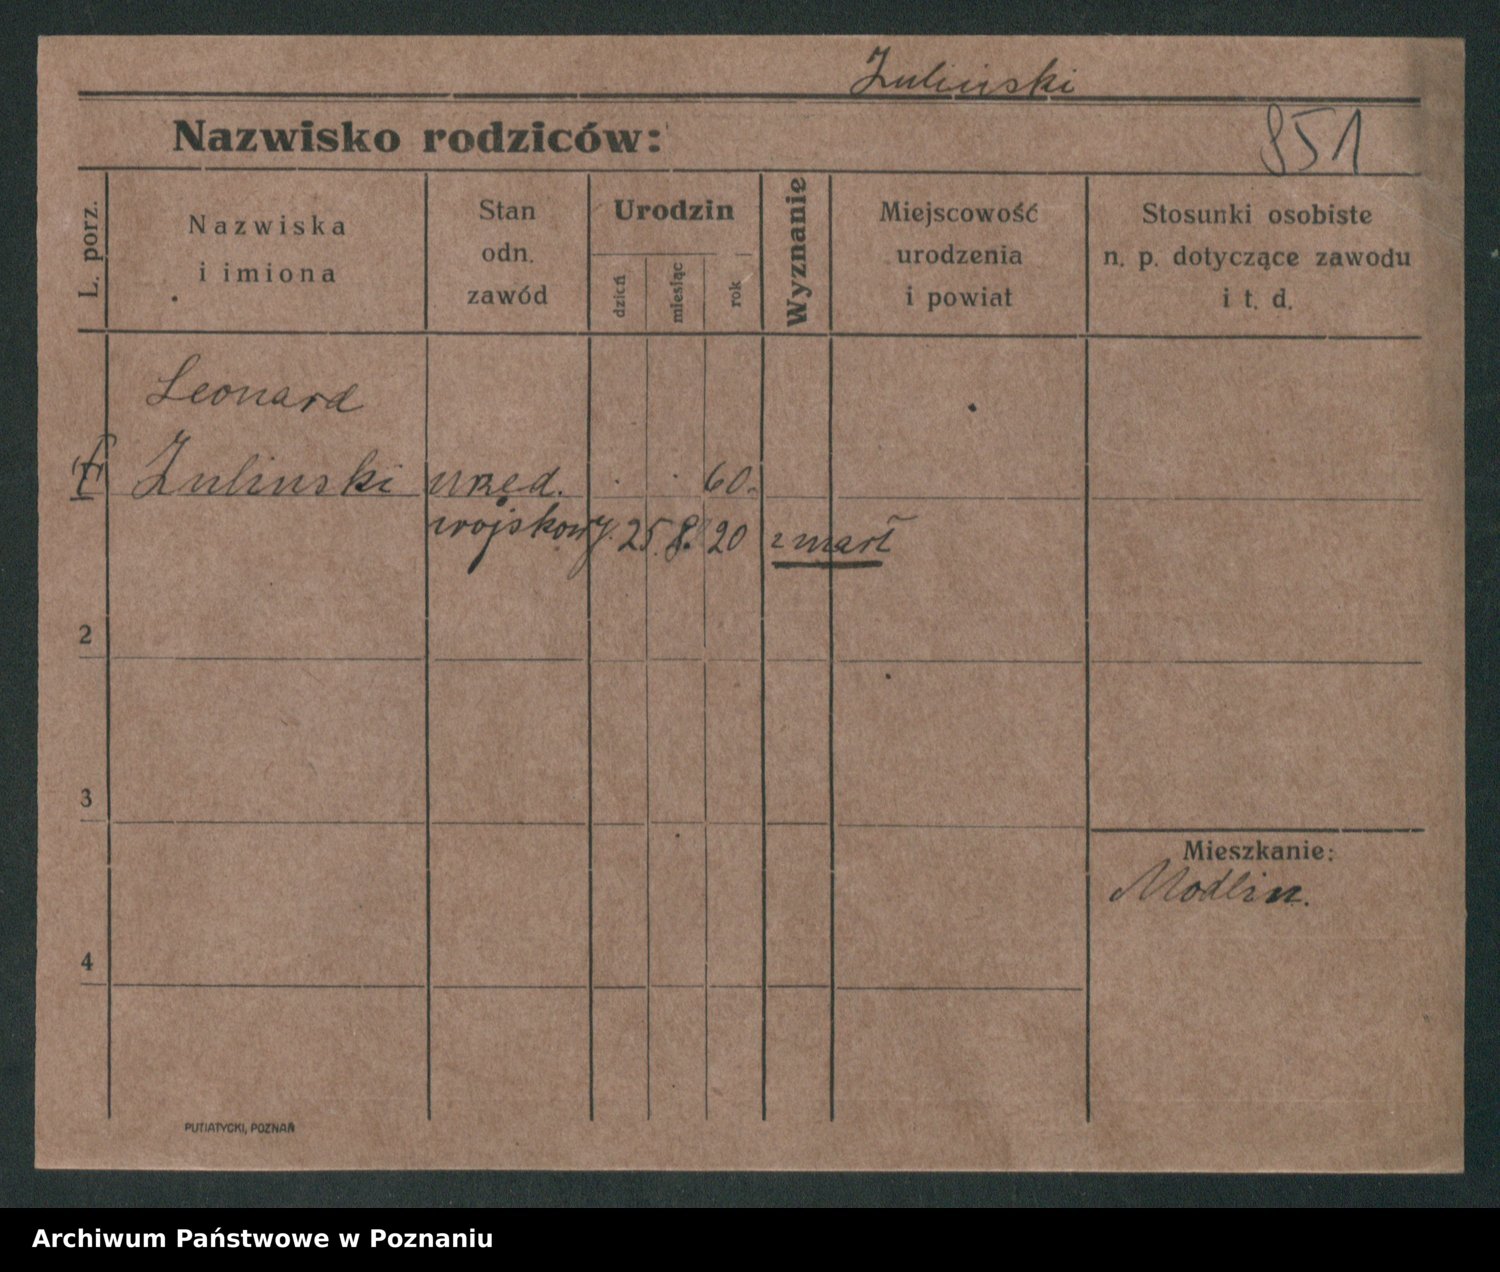 Żuliński
Nazwisko rodziców:
851
L. porz.
Nazwiska
i imiona
Stan
odn.
zawód
Urodzin
dzień
miesiąc
rok
Wyznanie
Miejscowość
urodzenia
i powiat
Stosunki osobiste
n. p. dotyczące zawodu
i t. d.
Leonard
Żuliński urzęd. 60.
wojskowy. 25. 8. 20 zmarł
2
3
4
Mieszkanie:
Modlin.
PUTIATYCKI, POZNAŃ
Archiwum Państwowe w Poznaniu